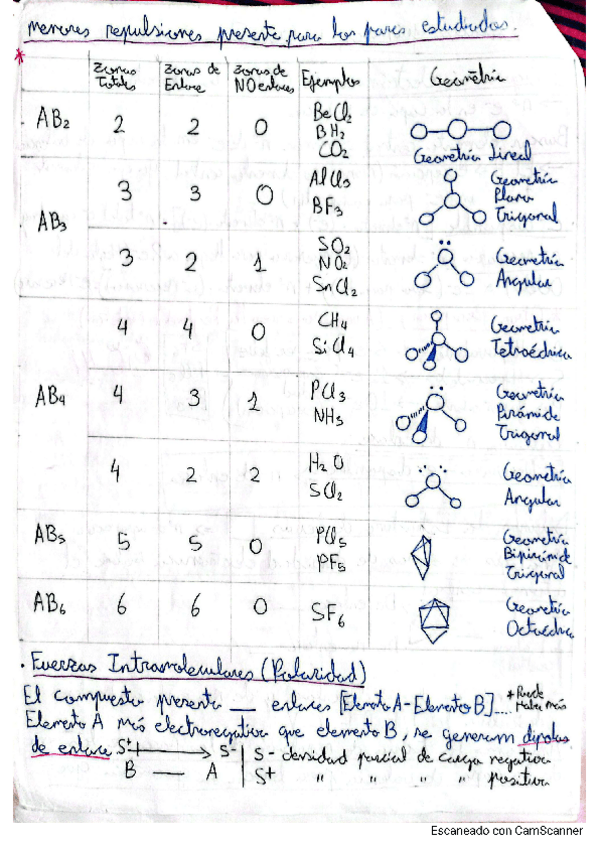 menores repulsiones presente para los pares estudiados.
* Zonas Totales Zonas de Enlace Zonas de NO enlaces Ejemplos Geometría
AB2 2 2 0 BeCl2 BH2 CO2 Geometría Lineal
AB3 3 3 0 AlCl3 BF3 Geometría Plana Trigonal
3 2 1 SO2 NO2 SnCl2 Geometría Angular
AB4 4 4 0 CH4 SiCl4 Geometría Tetraédrica
4 3 1 PCl3 NH3 Geometría Pirámide Trigonal
4 2 2 H2O SCl2 Geometría Angular
AB5 5 5 0 PCl5 PF5 Geometría Bipirámide Trigonal
AB6 6 6 0 SF6 Geometría Octaédrica
. Fuerzas Intramoleculares (Polaridad)
El compuesto presenta __ enlaces [Elemento A - Elemento B].... * Puede haber más
Elemento A más electronegativo que elemento B, se generan dipolos
de enlace. δ+ → δ- | δ- densidad parcial de carga negativa
B — A | δ+ " " " " positiva
Escaneado con CamScanner